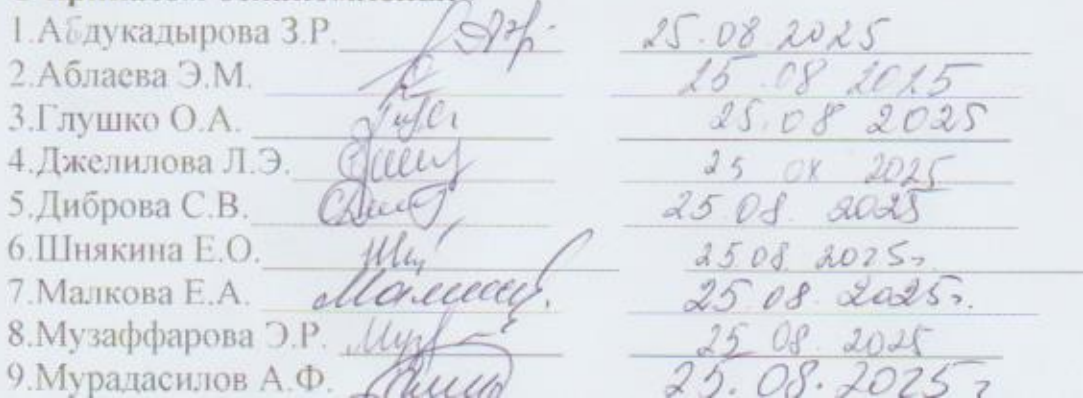 1.Абдукадырова З.Р. 25.08 2025
2.Аблаева Э.М. 25.08 2025
3.Глушко О.А. 25.08 2025
4.Джелилова Л.Э. 25 08 2025
5.Диброва С.В. 25 08. 2025
6.Шнякина Е.О. 25.08. 2025г
7.Малкова Е.А. 25 08. 2025г.
8.Музаффарова Э.Р. 25 08. 2025
9.Мурадасилов А.Ф. 25. 08. 2025 г